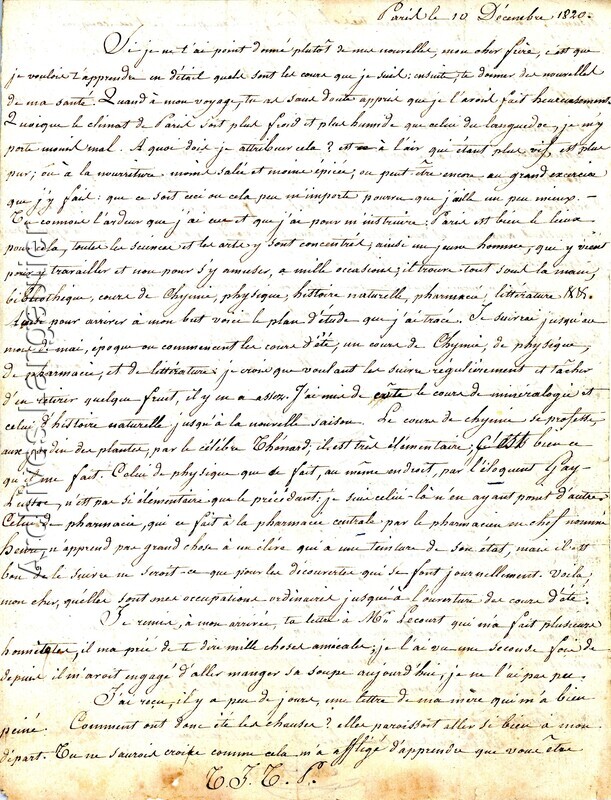 Paris le 10 Décembre 1820.
Si je ne t'ai point donné plutôt de mes nouvelles, mon cher frère, c'est que
je voulois t'apprendre en détail quels sont les cours que je suis; ensuite, te donner des nouvelles
de ma santé. Quand à mon voyage, tu as sans doute appris que je l'avois fait heureusement.
Quoique le climat de Paris soit plus froid et plus humide que celui du languedoc, je m'y
porte moins mal. A quoi dois je attribuer cela? est à l'air qui étant plus vif, est plus
pur; ou à la nourriture moins salée et moins épicée; ou peut être encore au grand exercice
que j'y fais: que ce soit ceci ou cela peu m'importe pourvu que j'aille un peu mieux. —
Tu connois l'ardeur que j'ai eue et que j'ai pour m'instruire. Paris est bien le lieux
pour cela, toutes les sciences et les arts y sont concentrés; ainsi un jeune homme, qui y vient
pour y travailler et non pour s'y amuser, a mille occasions; il trouve tout sous la main,
bibliothèque, cours de Chymie, physique, histoire naturelle, pharmacie, littérature &&.
pour arriver à mon but voici le plan d'étude que j'ai tracé. Je suivrai jusqu'au
mois de mai, époque où commencent les cours d'été, un cours de Chymie, de physique,
de pharmacie, et de littérature: je crois que voulant les suivre régulièrement et tâcher
d'en retirer quelque fruit, il y en a assez. J'ai mis de côté le cours de minéralogie et
celui d'histoire naturelle jusqu'à la nouvelle saison. Le cours de chymie se professe
aux jardin des plantes, par le célèbre Thénard; il est très élémentaire; c'est bien ce
qu'il me fait. Celui de physique qui se fait, au même endroit, par l'éloquent Gay-
Lussac, n'est pas si élémentaire que le précédent; je suis celui-là n'en ayant point d'autre.
Celui de pharmacie, qui ce fait à la pharmacie centrale par le pharmacien en chef nommé
Henri, n'apprend pas grand chose à un élève qui a une teinture de son état, mais il est
bon de le suivre ne seroit-ce que pour les découvertes qui se font journellement. Voilà,
mon cher, quelles sont mes occupations ordinaires jusqu'à l'ouverture des cours d'été.
Je remis, à mon arrivée, ta lettre à Mr Lecourt qui m'a fait plusieurs
honnêtetés, il m'a prié de te dire mille choses amicales; je l'ai vu une seconde fois
depuis il m'avoit engagé d'aller manger sa soupe aujourd'hui, je ne l'ai pas pu.
J'ai reçu, il y a peu de jours, une lettre de ma mère qui m'a bien
peiné. Comment ont donc été les choses? elles paroissoit aller si bien à mon
départ. Tu ne saurois croire comme cela m'a affligé d'apprendre que vous être
T.J.T.P.